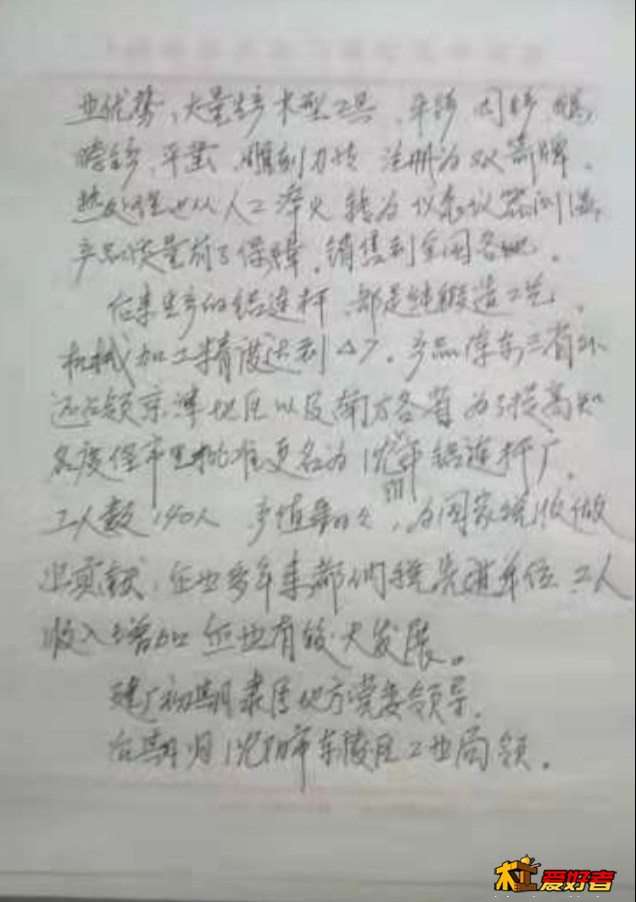 业优势，大量生产木型工具，平铲 圆铲
平凿，雕刻刀 注册为双箭牌，
热处理也从人工淬火 转为仪表仪器
产品质量有了保障，销售到全国各地。
后来生产的铝连杆，都是纯锻造工艺，
机械加工精度达到△7，产品 东三省外
还占领京津地区以及南方各省 为了提高知
名度经市里批准更名为沈 铝连杆厂，
工人数140人 产值 ，为国家税收做
出贡献，企业多年来都 先进单位，工人
收入增加 企业有较大发展。
建厂初期隶属地方党委领导，
后期归沈阳市东陵区工业局领。
木工爱好者